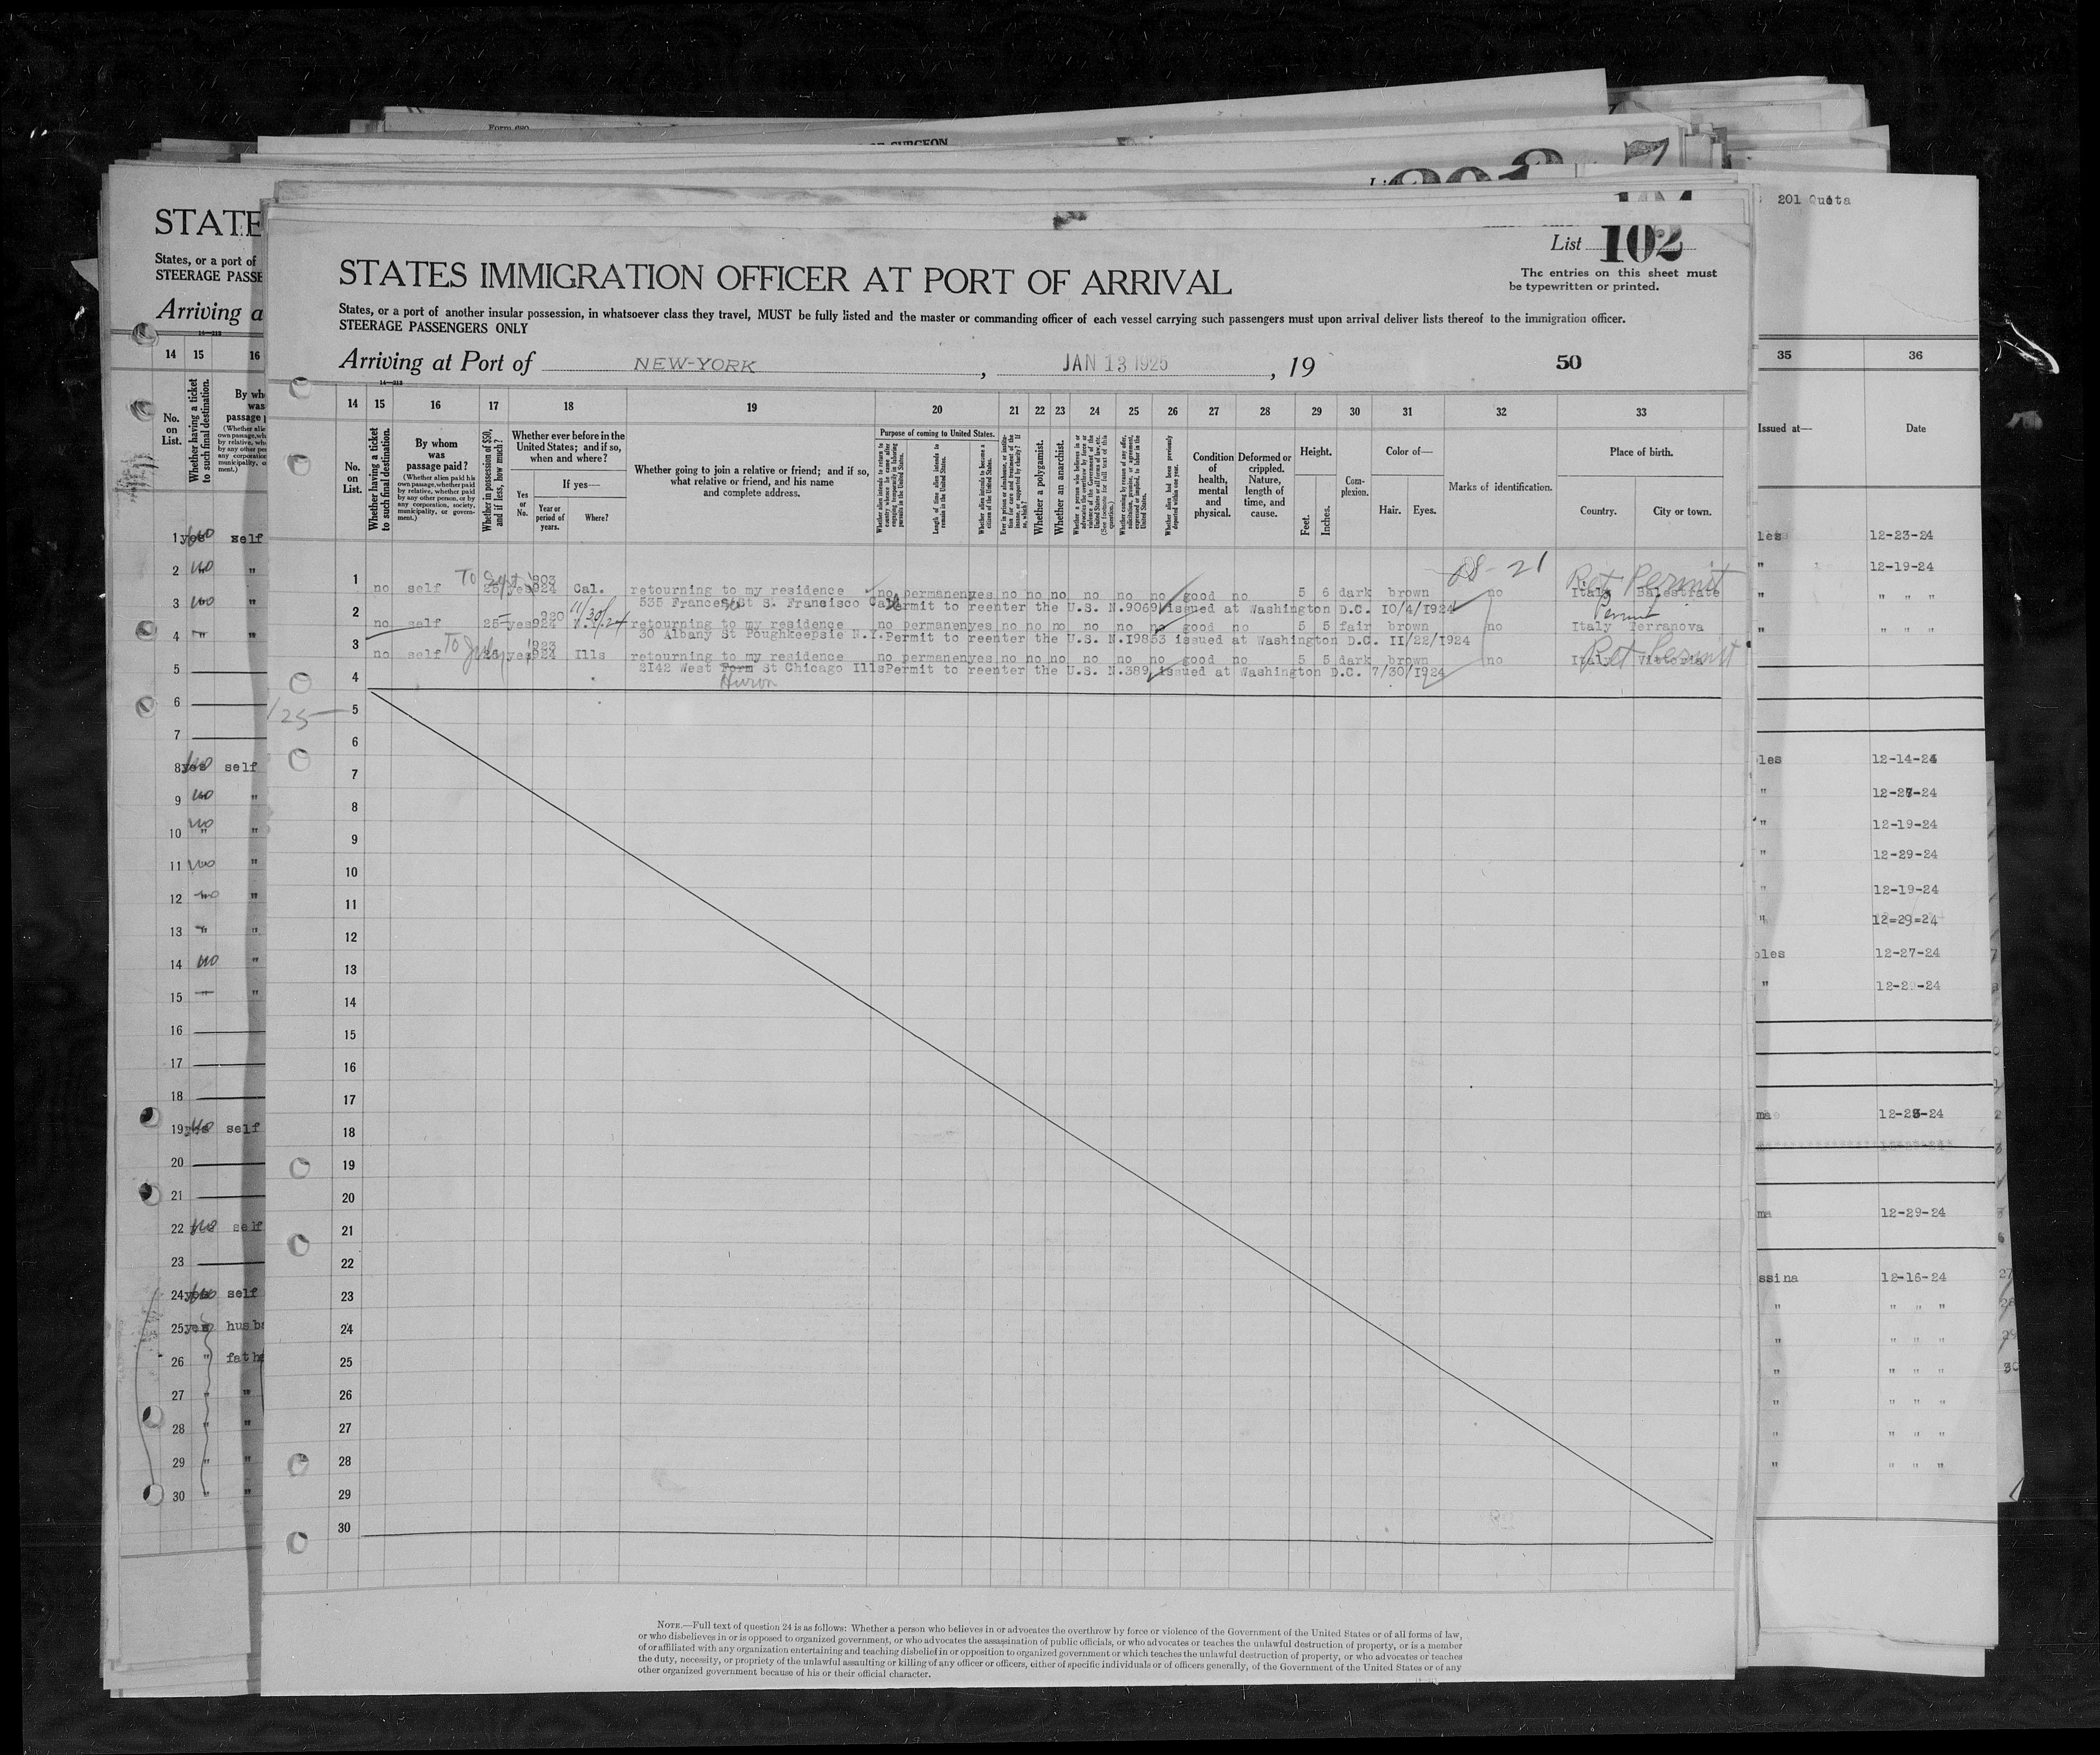 Form 690
OF SURGEON
201 Quota
STATE
States, or a port of
STEERAGE PASSE
Arriving a
List 102
The entries on this sheet must
be typewritten or printed.
STATES IMMIGRATION OFFICER AT PORT OF ARRIVAL
States, or a port of another insular possession, in whatsoever class they travel, MUST be fully listed and the master or commanding officer of each vessel carrying such passengers must upon arrival deliver lists thereof to the immigration officer.
STEERAGE PASSENGERS ONLY
Arriving at Port of NEW-YORK, JAN 13 1925, 19 50
14 15 16 17 18 19 20 21 22 23 24 25 26 27 28 29 30 31 32 33
No. on List.
Whether having a ticket to such final destination.
By whom was passage paid?
(Whether alien paid his own passage, whether paid by relative, whether paid by any other person, or by any corporation, society, municipality, or government.)
Whether in possession of $50, and if less, how much?
Whether ever before in the United States; and if so, when and where?
Yes or No.
If yes—
Year or period of years.
Where?
Whether going to join a relative or friend; and if so, what relative or friend, and his name and complete address.
Purpose of coming to United States.
Whether alien intends to return to country whence he came after engaging temporarily in laboring pursuits in the United States.
Length of time alien intends to remain in the United States.
Whether alien intends to become a citizen of the United States.
Ever in prison or almshouse, or institution for care and treatment of the insane, or supported by charity? If so, which?
Whether a polygamist.
Whether an anarchist.
Whether a person who believes in or advocates the overthrow by force or violence of the Government of the United States or all forms of law, etc. (See footnote for full text of this question.)
Whether coming by reason of any offer, solicitation, promise, or agreement, expressed or implied, to labor in the United States.
Whether alien had been previously deported within one year.
Condition of health, mental and physical.
Deformed or crippled. Nature, length of time, and cause.
Height.
Feet. Inches.
Complexion.
Color of—
Hair. Eyes.
Marks of identification.
Place of birth.
Country. City or town.
1 no self 25 yes 903 924 Cal. retourning to my residence no permanen yes no no no no no no good no 5 6 dark brown no Italy Balestrate
To Sept
08-21
Ret Permit
535 Frances St S. Francisco Cal Permit to reenter the U.S. N.9069 issued at Washington D.C. IO/4/I924
2 no self 25 yes 920 924 N.Y. retourning to my residence no permanen yes no no no no no no good no 5 5 fair brown no Italy Terranova
11/30/24
Permit
30 Albany St Poughkeepsie N.Y. Permit to reenter the U.S. N.I9853 issued at Washington D.C. II/22/I924
3 no self yes 923 924 Ills retourning to my residence no permanen yes no no no no no no good no 5 5 dark brown no Italy
To July
Ret Permit
2I42 West Form St Chicago Ills Permit to reenter the U.S. N.389 issued at Washington D.C. 7/30/I924
Huron
4
/25
5
6
7
8
9
10
11
12
13
14
15
16
17
18
19
20
21
22
23
24
25
26
27
28
29
30
NOTE.—Full text of question 24 is as follows: Whether a person who believes in or advocates the overthrow by force or violence of the Government of the United States or of all forms of law,
or who disbelieves in or is opposed to organized government, or who advocates the assassination of public officials, or who advocates or teaches the unlawful destruction of property, or is a member
of or affiliated with any organization entertaining and teaching disbelief in or opposition to organized government or which teaches the unlawful destruction of property, or who advocates or teaches
the duty, necessity, or propriety of the unlawful assaulting or killing of any officer or officers, either of specific individuals or of officers generally, of the Government of the United States or of any
other organized government because of his or their official character.
14 15 16
1 yes no self
2 no "
3 no "
4 " "
5
6
7
8 yes no self
9 no "
10 no "
11 no "
12 no "
13 " "
14 no "
15 "
16
17
18
19 no self
20
21
22 no self
23
24 yes no self
25 yes husba
26 " fathe
27 " "
28 " "
29 " "
30 " "
35 36
Issued at— Date
les 12-23-24
" 12-19-24
" " " "
" " " "
les 12-14-24
" 12-27-24
" 12-19-24
" 12-29-24
" 12-19-24
" 12=29=24
oles 12-27-24
" 12-29-24
ma 12-28-24
ma 12-29-24
ssina 12-16-24
" " " "
" " " "
" " " "
" " " "
" " " "
" " " "